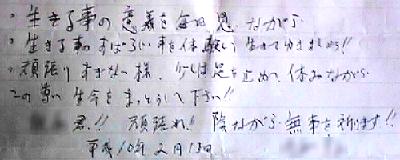 ・生きる事の意義を毎日思いながら
・生きる事のすばらしい事を体験し生きてゆきましょう!!
・頑張りすぎない様、少しは足を止めて、休みながら
この尊い生命をまっとうして下さい!!
君!! 頑張れ! 陰ながら無事を祈ります!!
平成10年2月13日